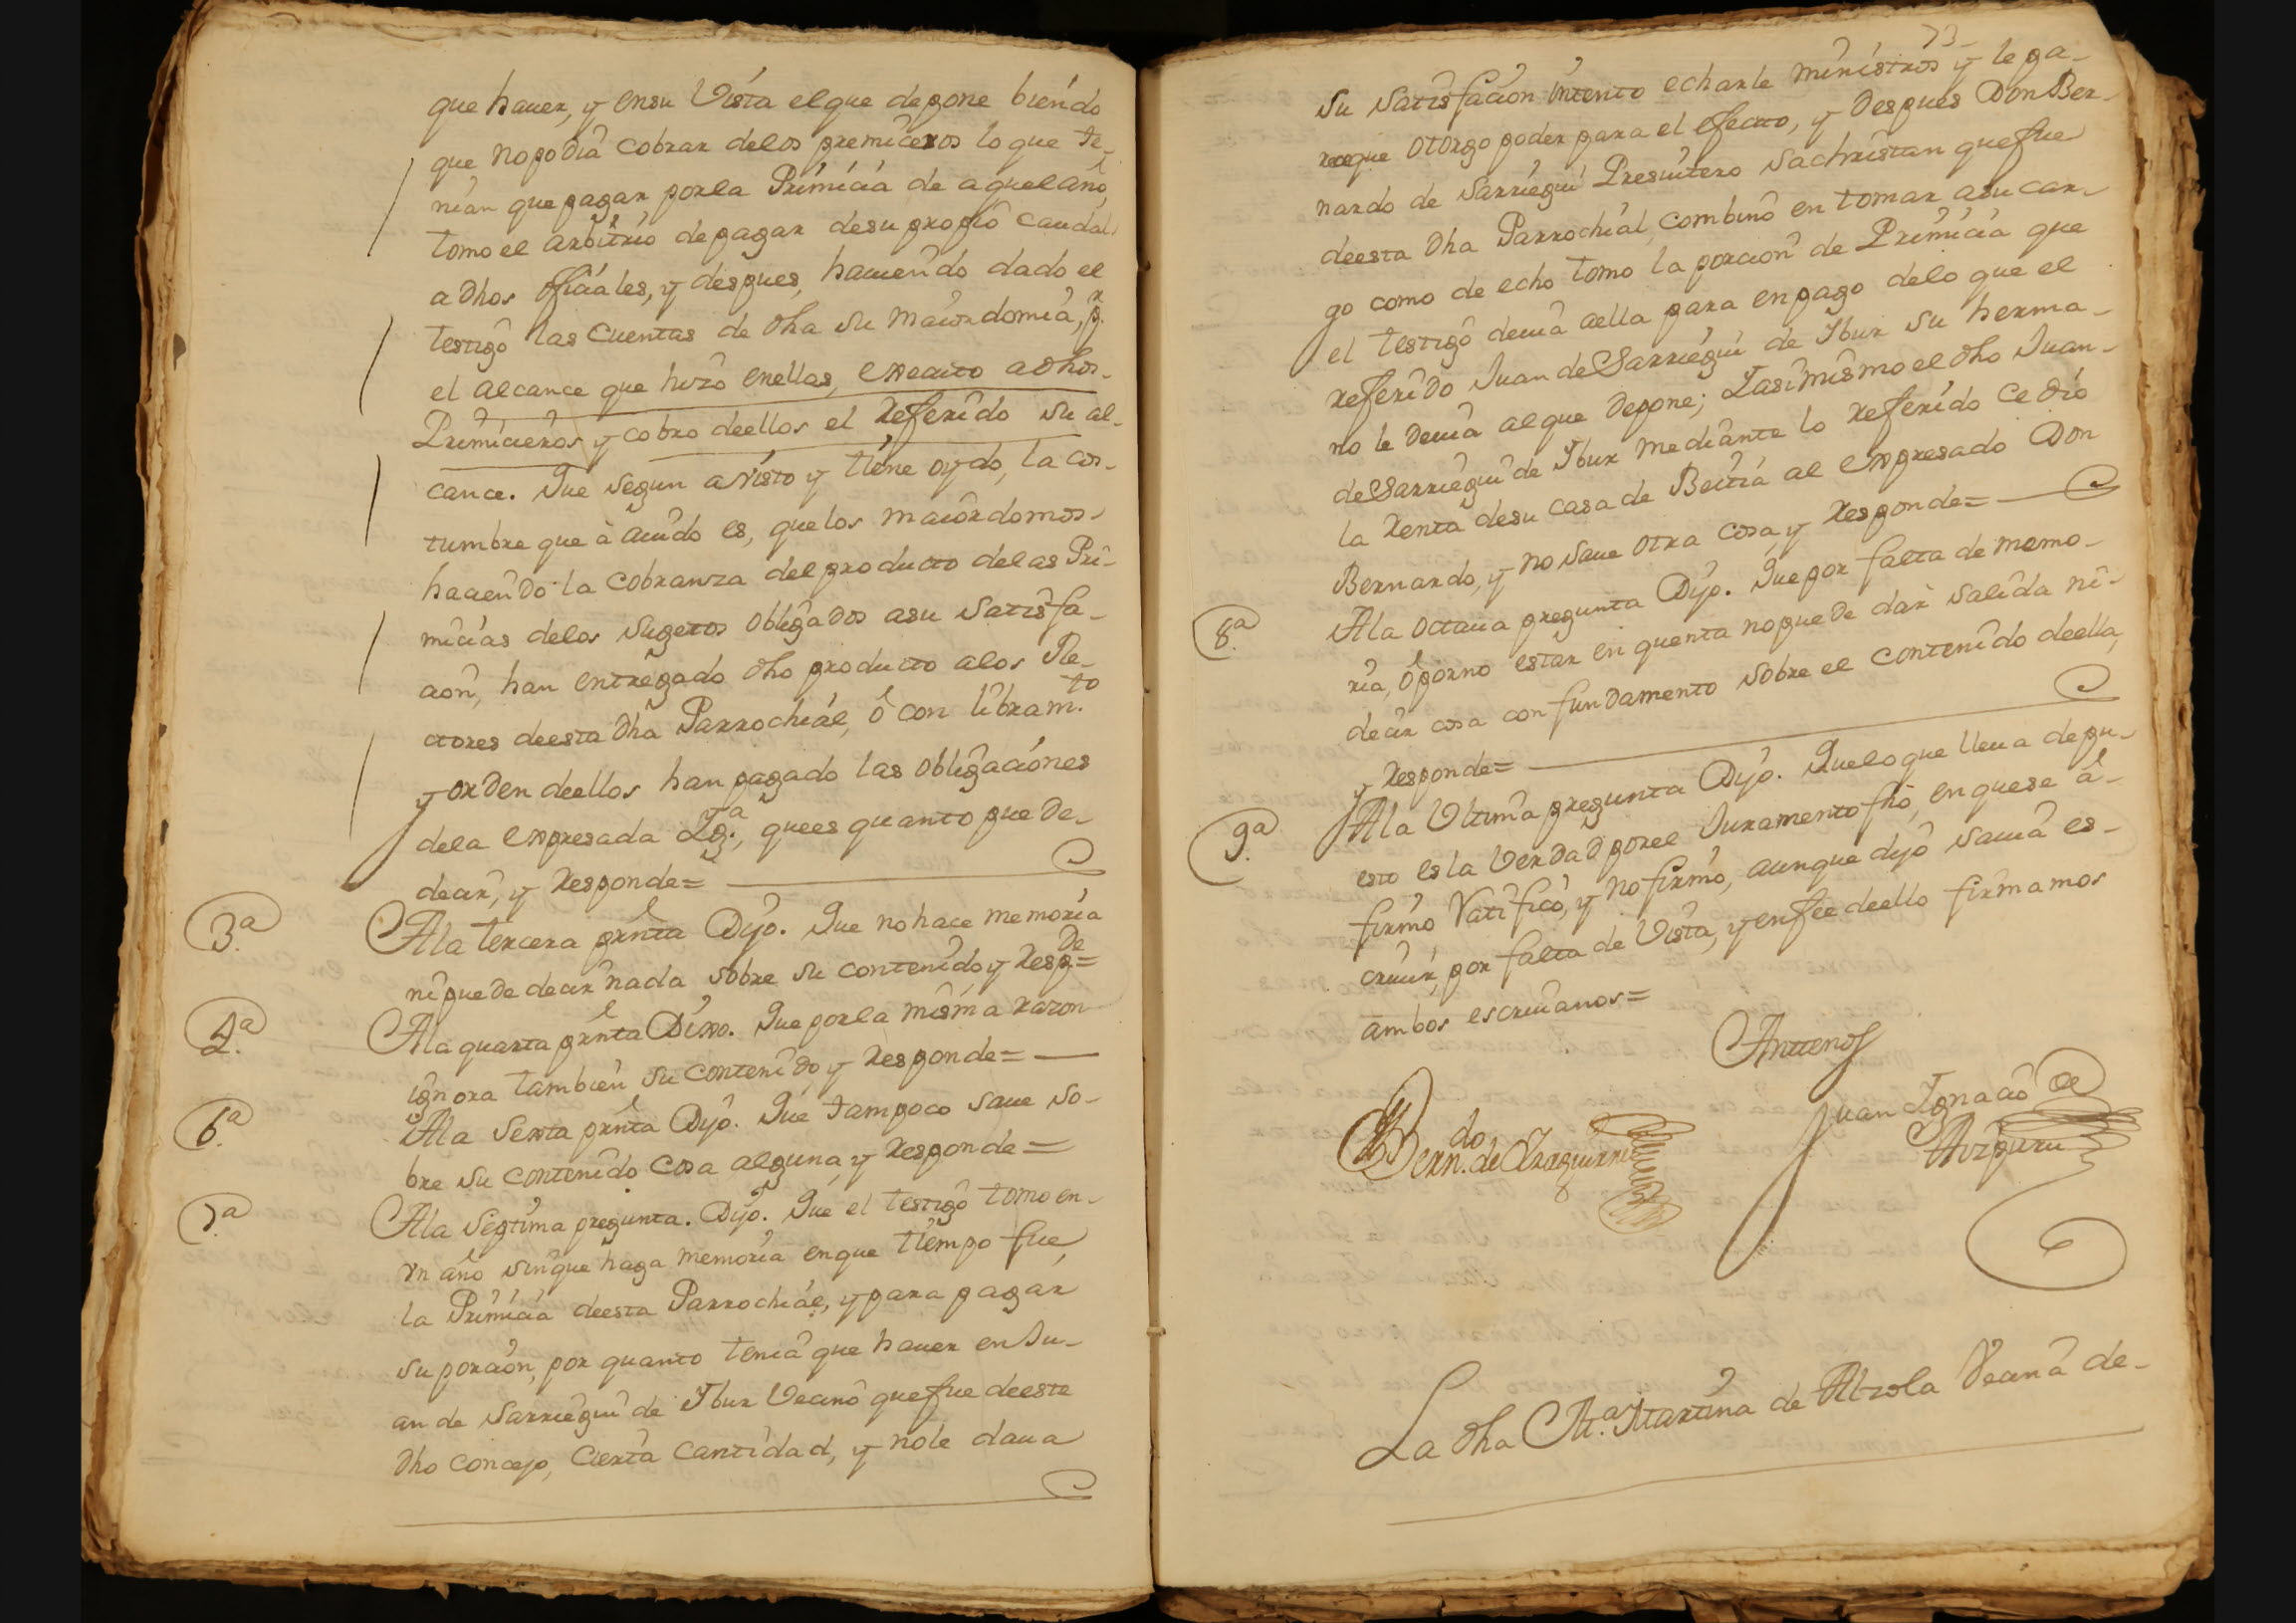 que hauer, y ensu Vista elque depone biendo
que nopodia cobrar delos premiceros lo que te-
nian que pagar porla Primicia de aquel año,
tomo el arbitrio depagar desu propio caudal
a dhos oficiales, y despues, hauiendo dado el
testigo las Cuentas de dha su maiordomia, pr.
el alcance que hizo enellas, executo adhos
Primicieros y cobro deellos el Referido su al-
cance. Que segun a visto y tiene oydo, la cos-
tumbre que à auido es, quelos maiordomos
haciendo la cobranza del producto delas Pri-
micias delos sugetos obligados asu satisfa-
cion, han entregado dho producto alos Re-
ctores deesta dha Parrochial, ô con libramto.
y orden deellos han pagado las obligaciones
dela expresada Yga., quees quanto puede
decir, y Responde=
3.a Ala tercera prnta Dijo. Que no hace memoria
nipuede decir nada sobre su contenido, y Respde=
4.a Ala quarta prnta Dixo. Que porla misma razon
ignora tambien su contenido y Responde=
6.a Ala Sexta prnta Dijo. Que tampoco saue so-
bre su contenido cosa alguna, y Responde=
7.a Ala Septima pregunta. Dijo. Que el testigo tomo en
vn año sinque haga memoria enque tiempo fue,
la Primicia deesta Parrochial, y para pagar
su porcion, por quanto tenia que hauer en Ju-
an de Sarriegui de Ybur Vecino quefue deeste
dho concejo, cierta cantidad, y nole daua
73
su satisfacion intento echarle ministros y le pa-
receque otorgo poder para el efecto, y despues Don Ber-
nardo de Sarriegui Presuitero sachristan quefue
deesta dha Parrochial, combino en tomar asu car-
go como de echo tomo la porcion de Primicia que
el testigo deuia aella para enpago delo que el
referido Juan de Sarriegui de Ybur su herma-
no le deuia alque depone; Yasimismo el dho Juan
de Sarriegui de Ybur mediante lo Referido cedio
la Renta desu casa de Beitia al expresado Don
Bernardo, y no saue otra cosa, y Responde=
8.a Ala octaua pregunta Dijo. Que por falta de memo-
ria, ô porno estar en quenta nopuede dar salida ni
decir cosa con fundamento sobre el contenido deella,
y Responde=
9.a Ala Vltima pregunta Dijo. Quelo que lleua depu-
esto es la Verdad porel Juramento fho, en que se a-
firmo Ratifico, y no firmo, aunque dijo sauia es-
criuir, por falta de Vista, y enfee deello firmamos
ambos escriuanos=
Anttenos
Berndo. de Yzaguirre
Juan Ygnacio de
Aizpuru
La dha Ma. Martina de Alzola Vecina de